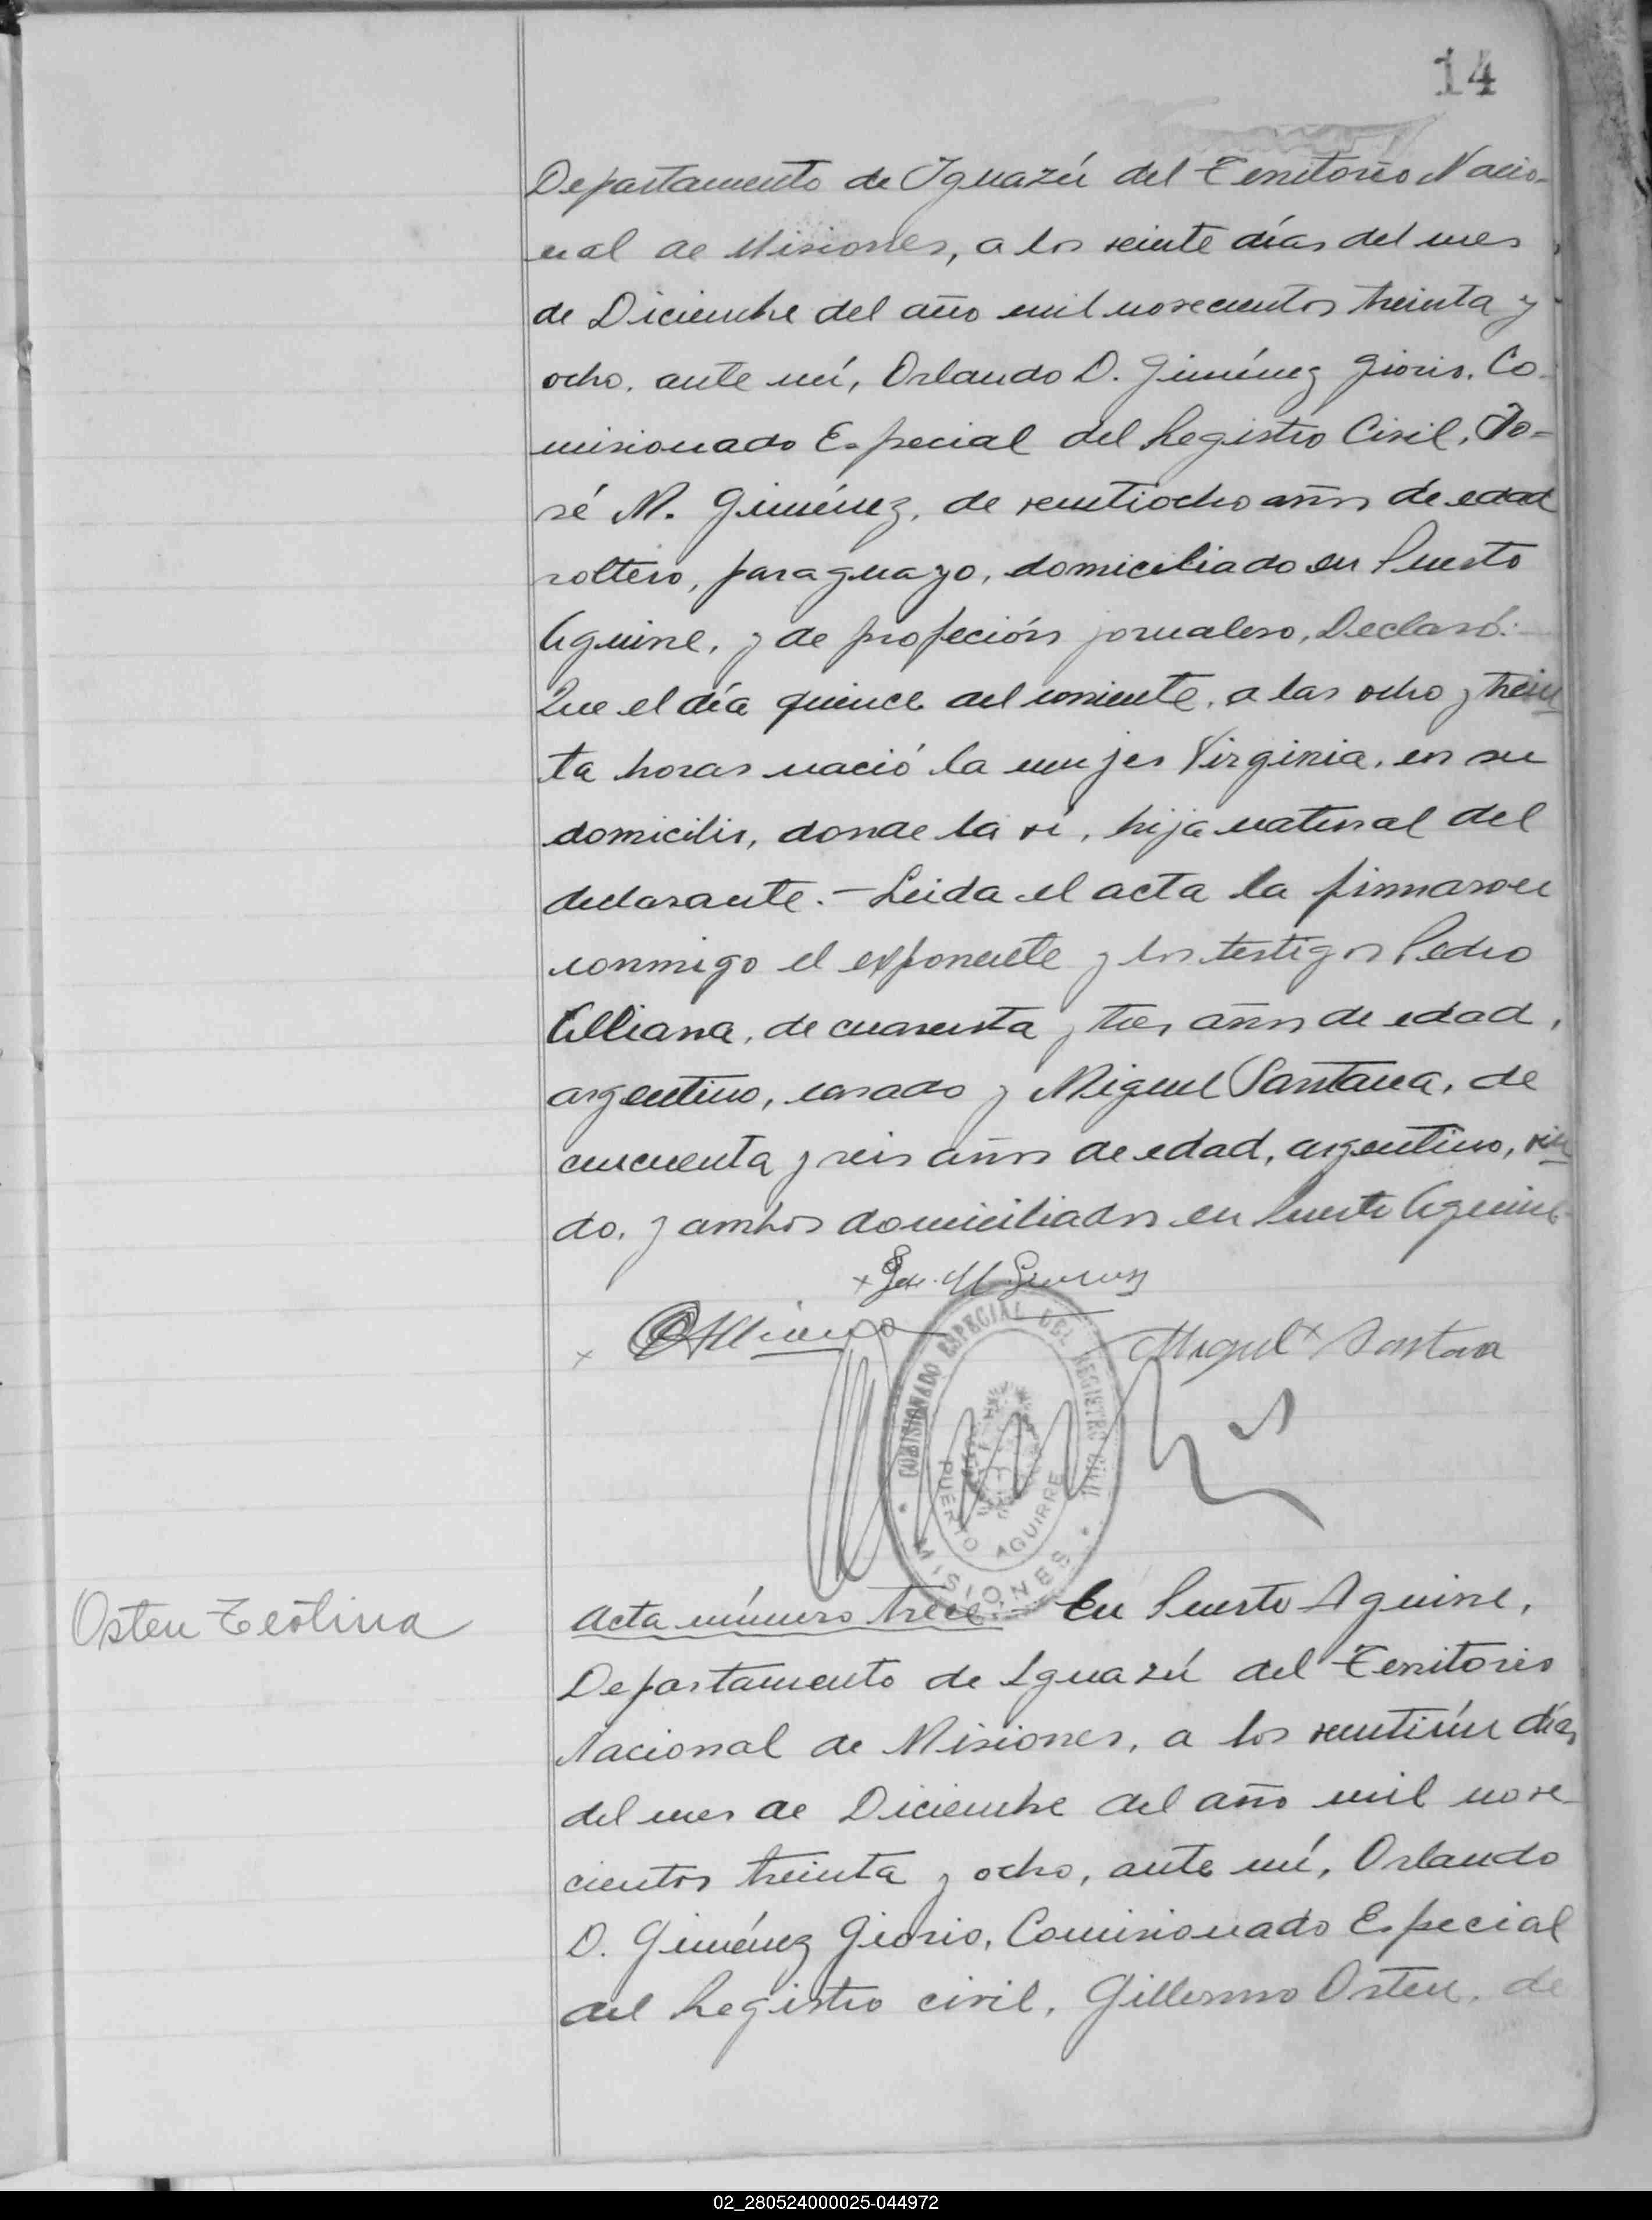 14
Departamento de Iguazú del Territorio Nacio-
nal de Misiones, a los veinte días del mes
de Diciembre del año mil novecientos treinta y
ocho, ante mí, Orlando D. Giménez Giorio, Co-
misionado Especial del Registro Civil, Jo=
sé M. Giménez, de veintiocho años de edad
soltero, paraguayo, domiciliado en Puerto
Aguirre, y de profeción jornalero, Declaró:
Que el día quince del corriente, a las ocho y trein
ta horas nació la mujer Virginia, en su
domicilio, donde la ví, hija natural del
declarante.- Leida el acta la firmaron
conmigo el exponente y los testigos Pedro
Alliana, de cuarenta y tres años de edad,
argentino, casado y Miguel Santana, de
cincuenta y seis años de edad, argentino, viu
do, y ambos domiciliados en Puerto Aguirre
Miguel Santana
COMISIONADO ESPECIAL DEL REGISTRO CIVIL
PUERTO AGUIRRE
MISIONES
Osten Teolina
Acta número trece.- En Puerto Aguirre,
Departamento de Iguazú del Territorio
Nacional de Misiones, a los veintiún días
del mes de Diciembre del año mil nove-
cientos treinta y ocho, ante mí, Orlando
D. Giménez Giorio, Comisionado Especial
del Registro civil, Gillermo Osten, de
02_280524000025-044972